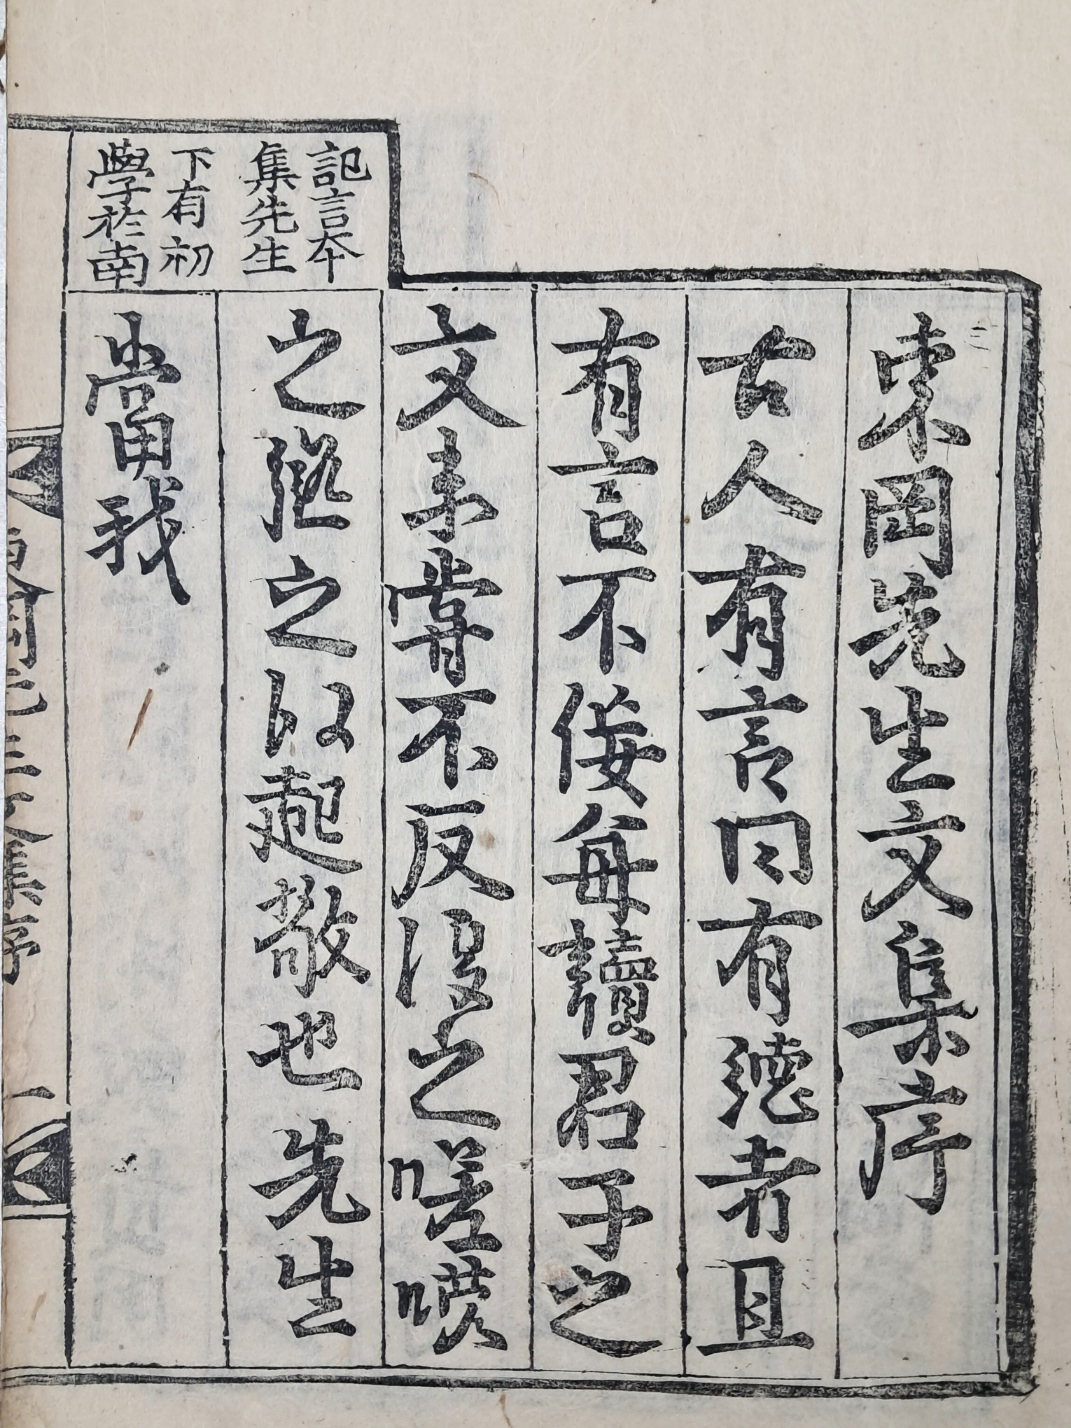 東岡先生文集序
古人有言曰有德者且
有言不佞每讀君子之
文未嘗不反復之嗟嘆
之繼之以起敬也先生
當我
記言本
集先生
下有初
學於南